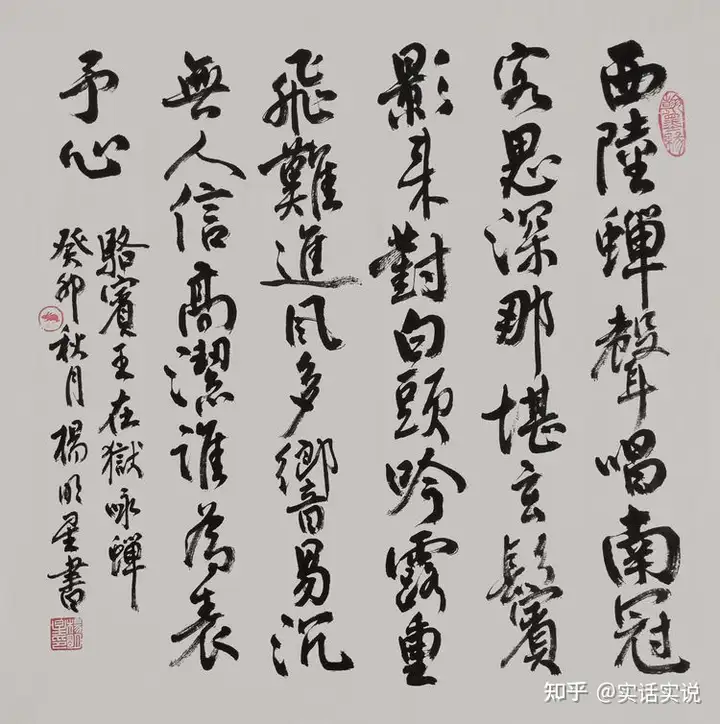 西陸蟬聲唱南冠
客思深那堪玄鬢
影来對白頭吟露重
飛難進風多響易沉
無人信高潔誰為表
予心
駱賓王在獄咏蟬
癸卯秋月楊明星書
知乎 @实话实说